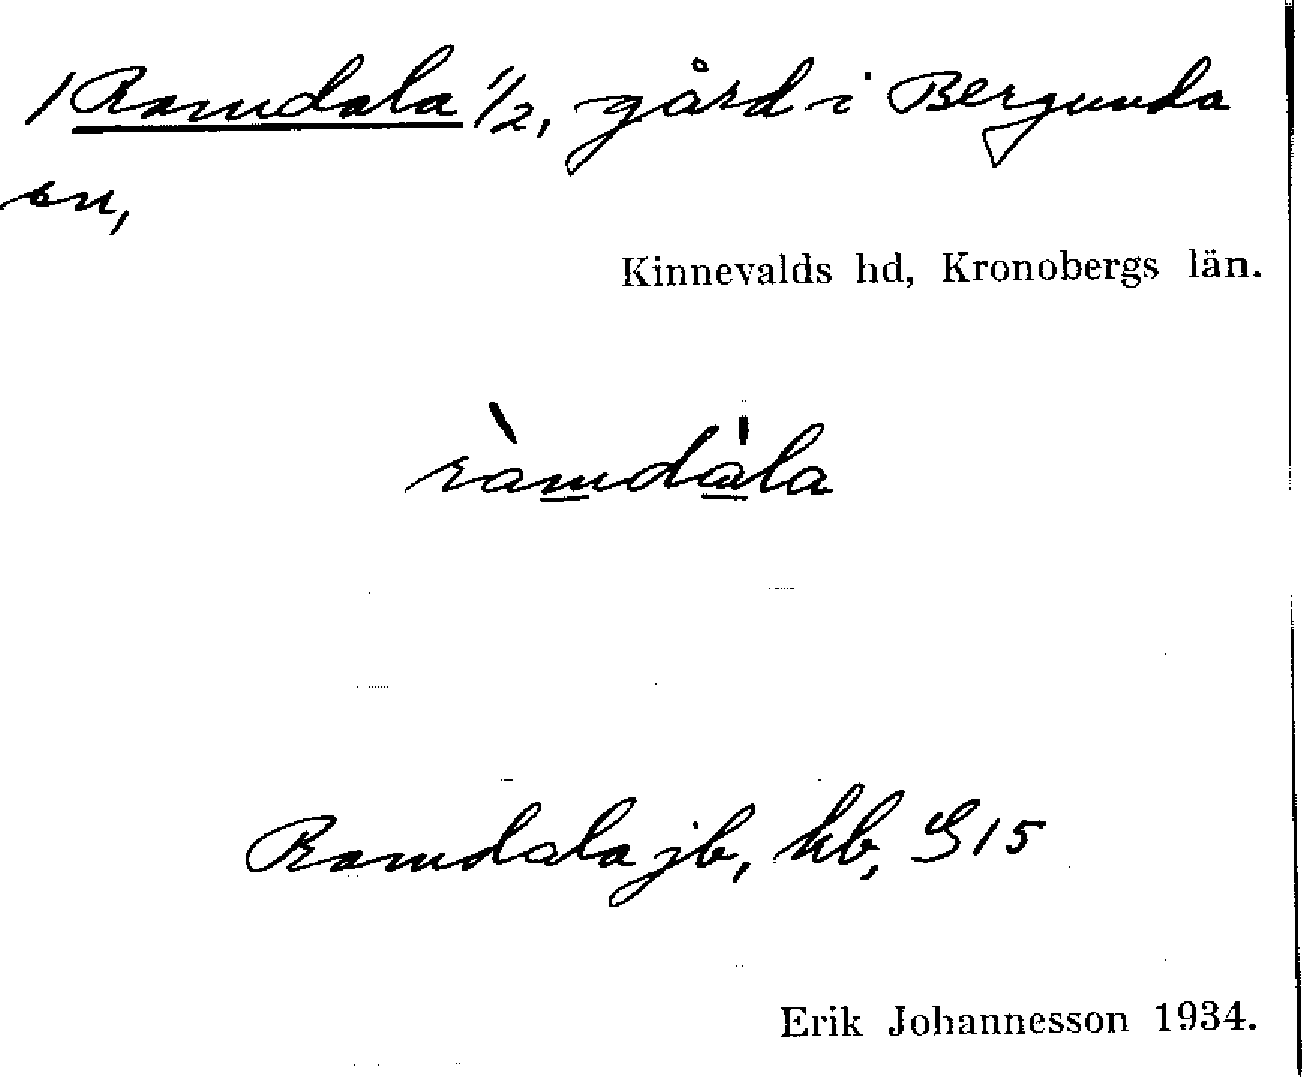 /Ramdala 1/2, gård i Bergunda
sn,
Kinnevalds hd, Kronobergs län.
ràmdàla
Ramdala jb, kb, G15
Erik Johannesson 1934.